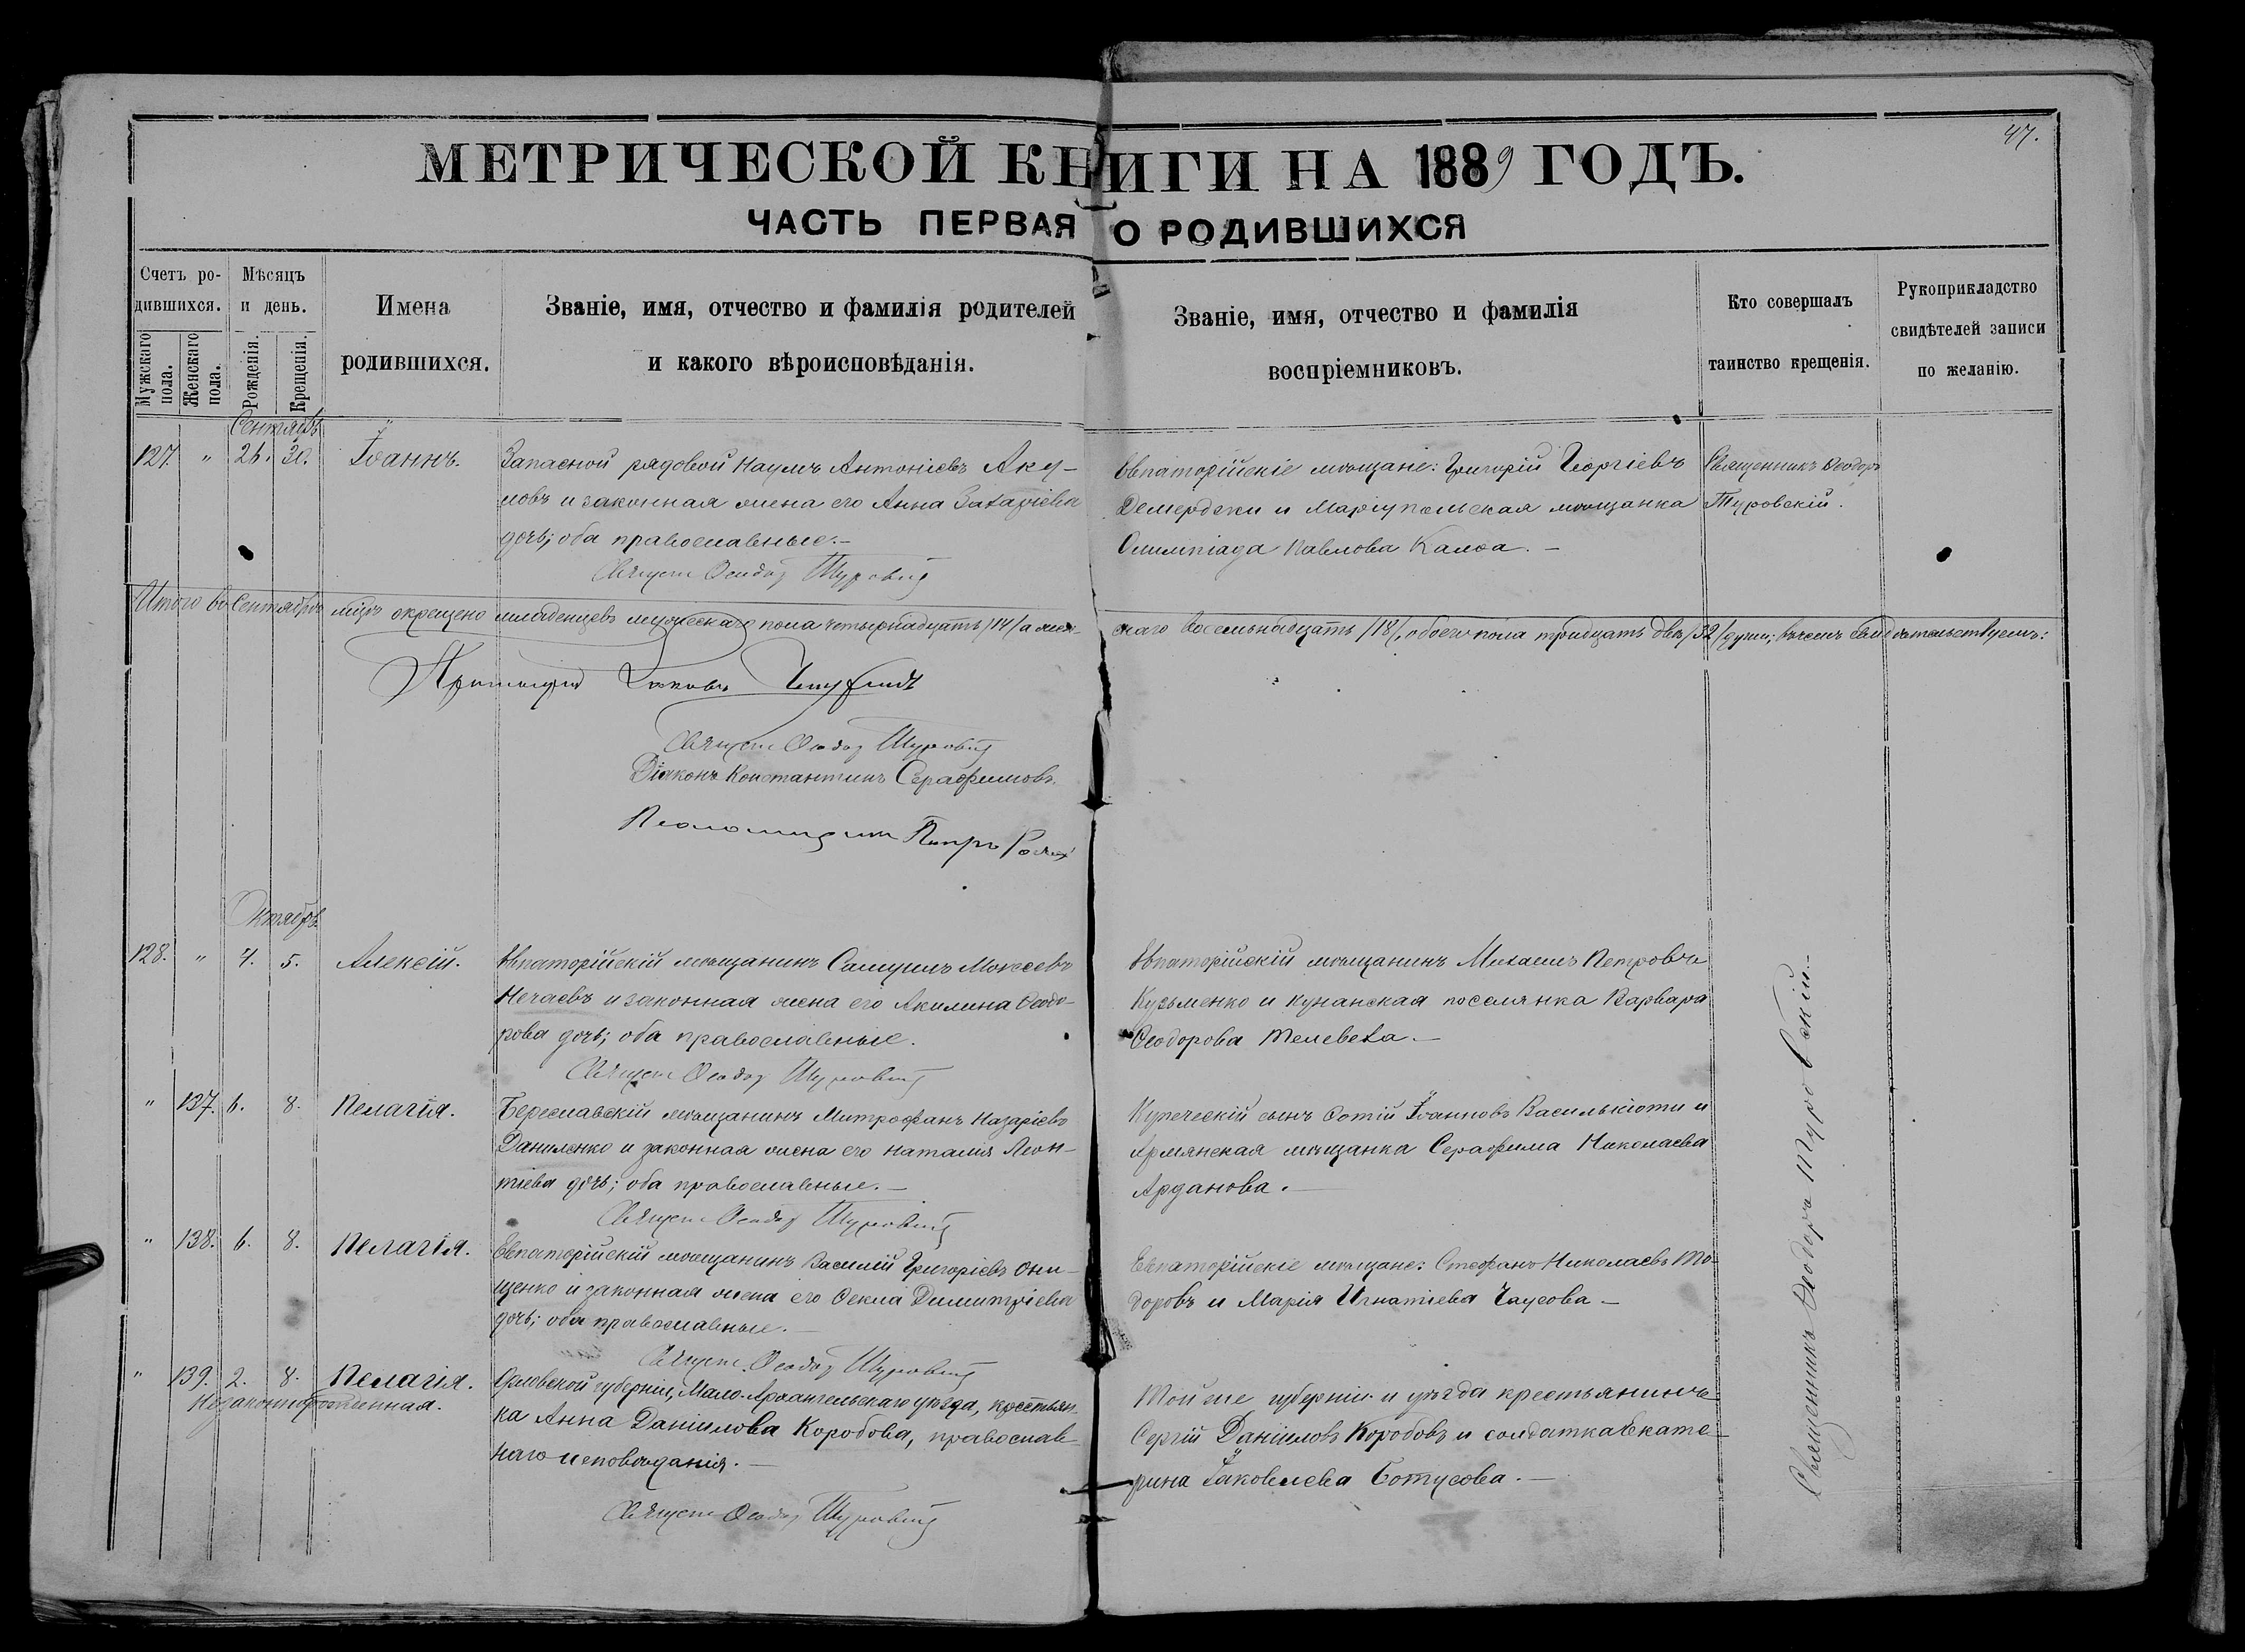 47.
МЕТРИЧЕСКОЙ КНИГИ НА 1889 ГОДЪ.
ЧАСТЬ ПЕРВАЯ О РОДИВШИХСЯ
Счетъ ро-
дившихся.
Мужскаго пола.
Женскаго пола.
Мѣсяцъ
и день.
Рожденія.
Крещенія.
Имена
родившихся.
Званіе, имя, отчество и фамилія родителей
и какого вѣроисповѣданія.
Званіе, имя, отчество и фамилія
воспріемниковъ.
Кто совершалъ
таинство крещенія.
Рукоприкладство
свидѣтелей записи
по желанію.
Сентябрь
127. " 26. 30. Іоаннъ.
Запасной рядовой Наумъ Антоніевъ Аку-
ловъ и законная жена его Анна Захаріева
дочь; оба православные.-
Священ Ѳеодор Туровскій
Евпаторійскіе мѣщане: Григорій Георгіевъ
Демерджи и Маріупольская мѣщанка
Олимпіада Павлова Калоа. -
Священникъ Ѳеодоръ
Туровскій.
Итого въ Сентябрѣ мѣцѣ окрещено младенцевъ мужескаго пола четырнадцать /14/ а жен-
скаго восемьнадцать /18/, обоего пола тридцать двѣ /32/ души; въ чемъ свидѣтельствуемъ:
Протоіерей Іаковъ
Священ Ѳеодор Туровскій
Діаконъ Константинъ Серафимовъ.
Псаломщикъ Петръ
Октябрь.
128. " 4. 5. Алексій.
Евпаторійскій мѣщанинъ Самуилъ Мокеевъ
Нечаевъ и законная жена его Акилина Ѳеодо-
рова дочь; оба православные.
Священ Ѳеодор Туровскій
Евпаторійскій мѣщанинъ Михаилъ Петровъ
Кузьменко и кунанская поселянка Варвара
Ѳеодорова Мелевеха. -
" 137. 6. 8. Пелагія.
Береславскій мѣщанинъ Митрофанъ Назаріевъ
Даниленко и законная жена его Наталія Леон-
тіева дочь; оба православные. -
Священ Ѳеодор Туровскій
Купеческій сынъ Фотій Іоанновъ Василькіоти и
Армянская мѣщанка Серафима Николаева
Арданова. -
" 138. 6. 8. Пелагія.
Евпаторійскій мѣщанинъ Василій Григоріевъ Они-
щенко и законная жена его Ѳекла Димитріева
дочь; оба православные. -
Священ Ѳеодор Туровскій
Евпаторійскіе мѣщане: Стефанъ Николаевъ То-
доровъ и Марія Игнатіева Чаусова -
" 139. 2. 8. Пелагія.
Незаконнорожденная.
Орловской губерніи, Мало-Архангельскаго уѣзда, крестьян-
ка Анна Даніилова Коробова, православ-
наго исповѣданія. -
Священ Ѳеодор Туровскій
Той же губерніи и уѣзда крестьянинъ
Сергій Даніиловъ Коробовъ и солдатка Екате-
рина Іаковлева Ботусова. -
Священникъ Ѳеодоръ Туровскій.-